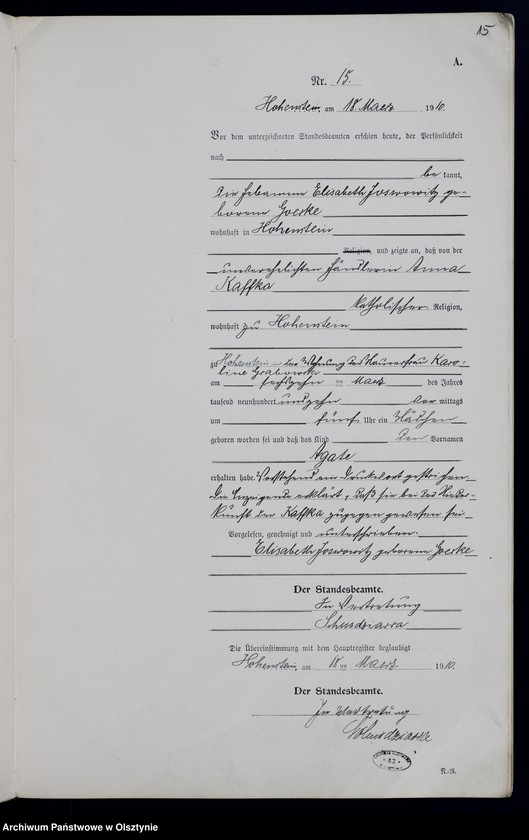 15
A.
Nr. 15.
Hohenstein, am 18 Maerz 1910.
Vor dem unterzeichneten Standesbeamten erschien heute, der Persönlichkeit
nach
be kannt,
die Hebamme Elisabeth Joswowitz ge-
borene Goerke
wohnhaft in Hohenstein
Religion, und zeigte an, daß von der
unverehelichten Händlerin Anna
Kaffka
katholischer Religion,
wohnhaft zu Hohenstein
zu Hohenstein in der Wohnung der Maurerfrau Karo-
line Grabowski
am sechszehn ten Maerz des Jahres
tausend neunhundert und zehn vor mittags
um fünf Uhr ein Mädchen
geboren worden sei und daß das Kind den Vornamen
Agate
erhalten habe. Vorstehend ein Druckwort gestrichen.
Die Anzeigende erklärt, daß sie bei der Nieder-
kunft der Kaffka zugegen gewesen sei.
Vorgelesen, genehmigt und unterschrieben.
Elisabeth Joswowitz geborene Goerke
Der Standesbeamte.
In Vertretung
Schusdziarra
Die Übereinstimmung mit dem Hauptregister beglaubigt
Hohenstein, am 18 ten Maerz 1910.
Der Standesbeamte.
In Vertretung
Schusdziarra
42
N.-R.
Archiwum Państwowe w Olsztynie